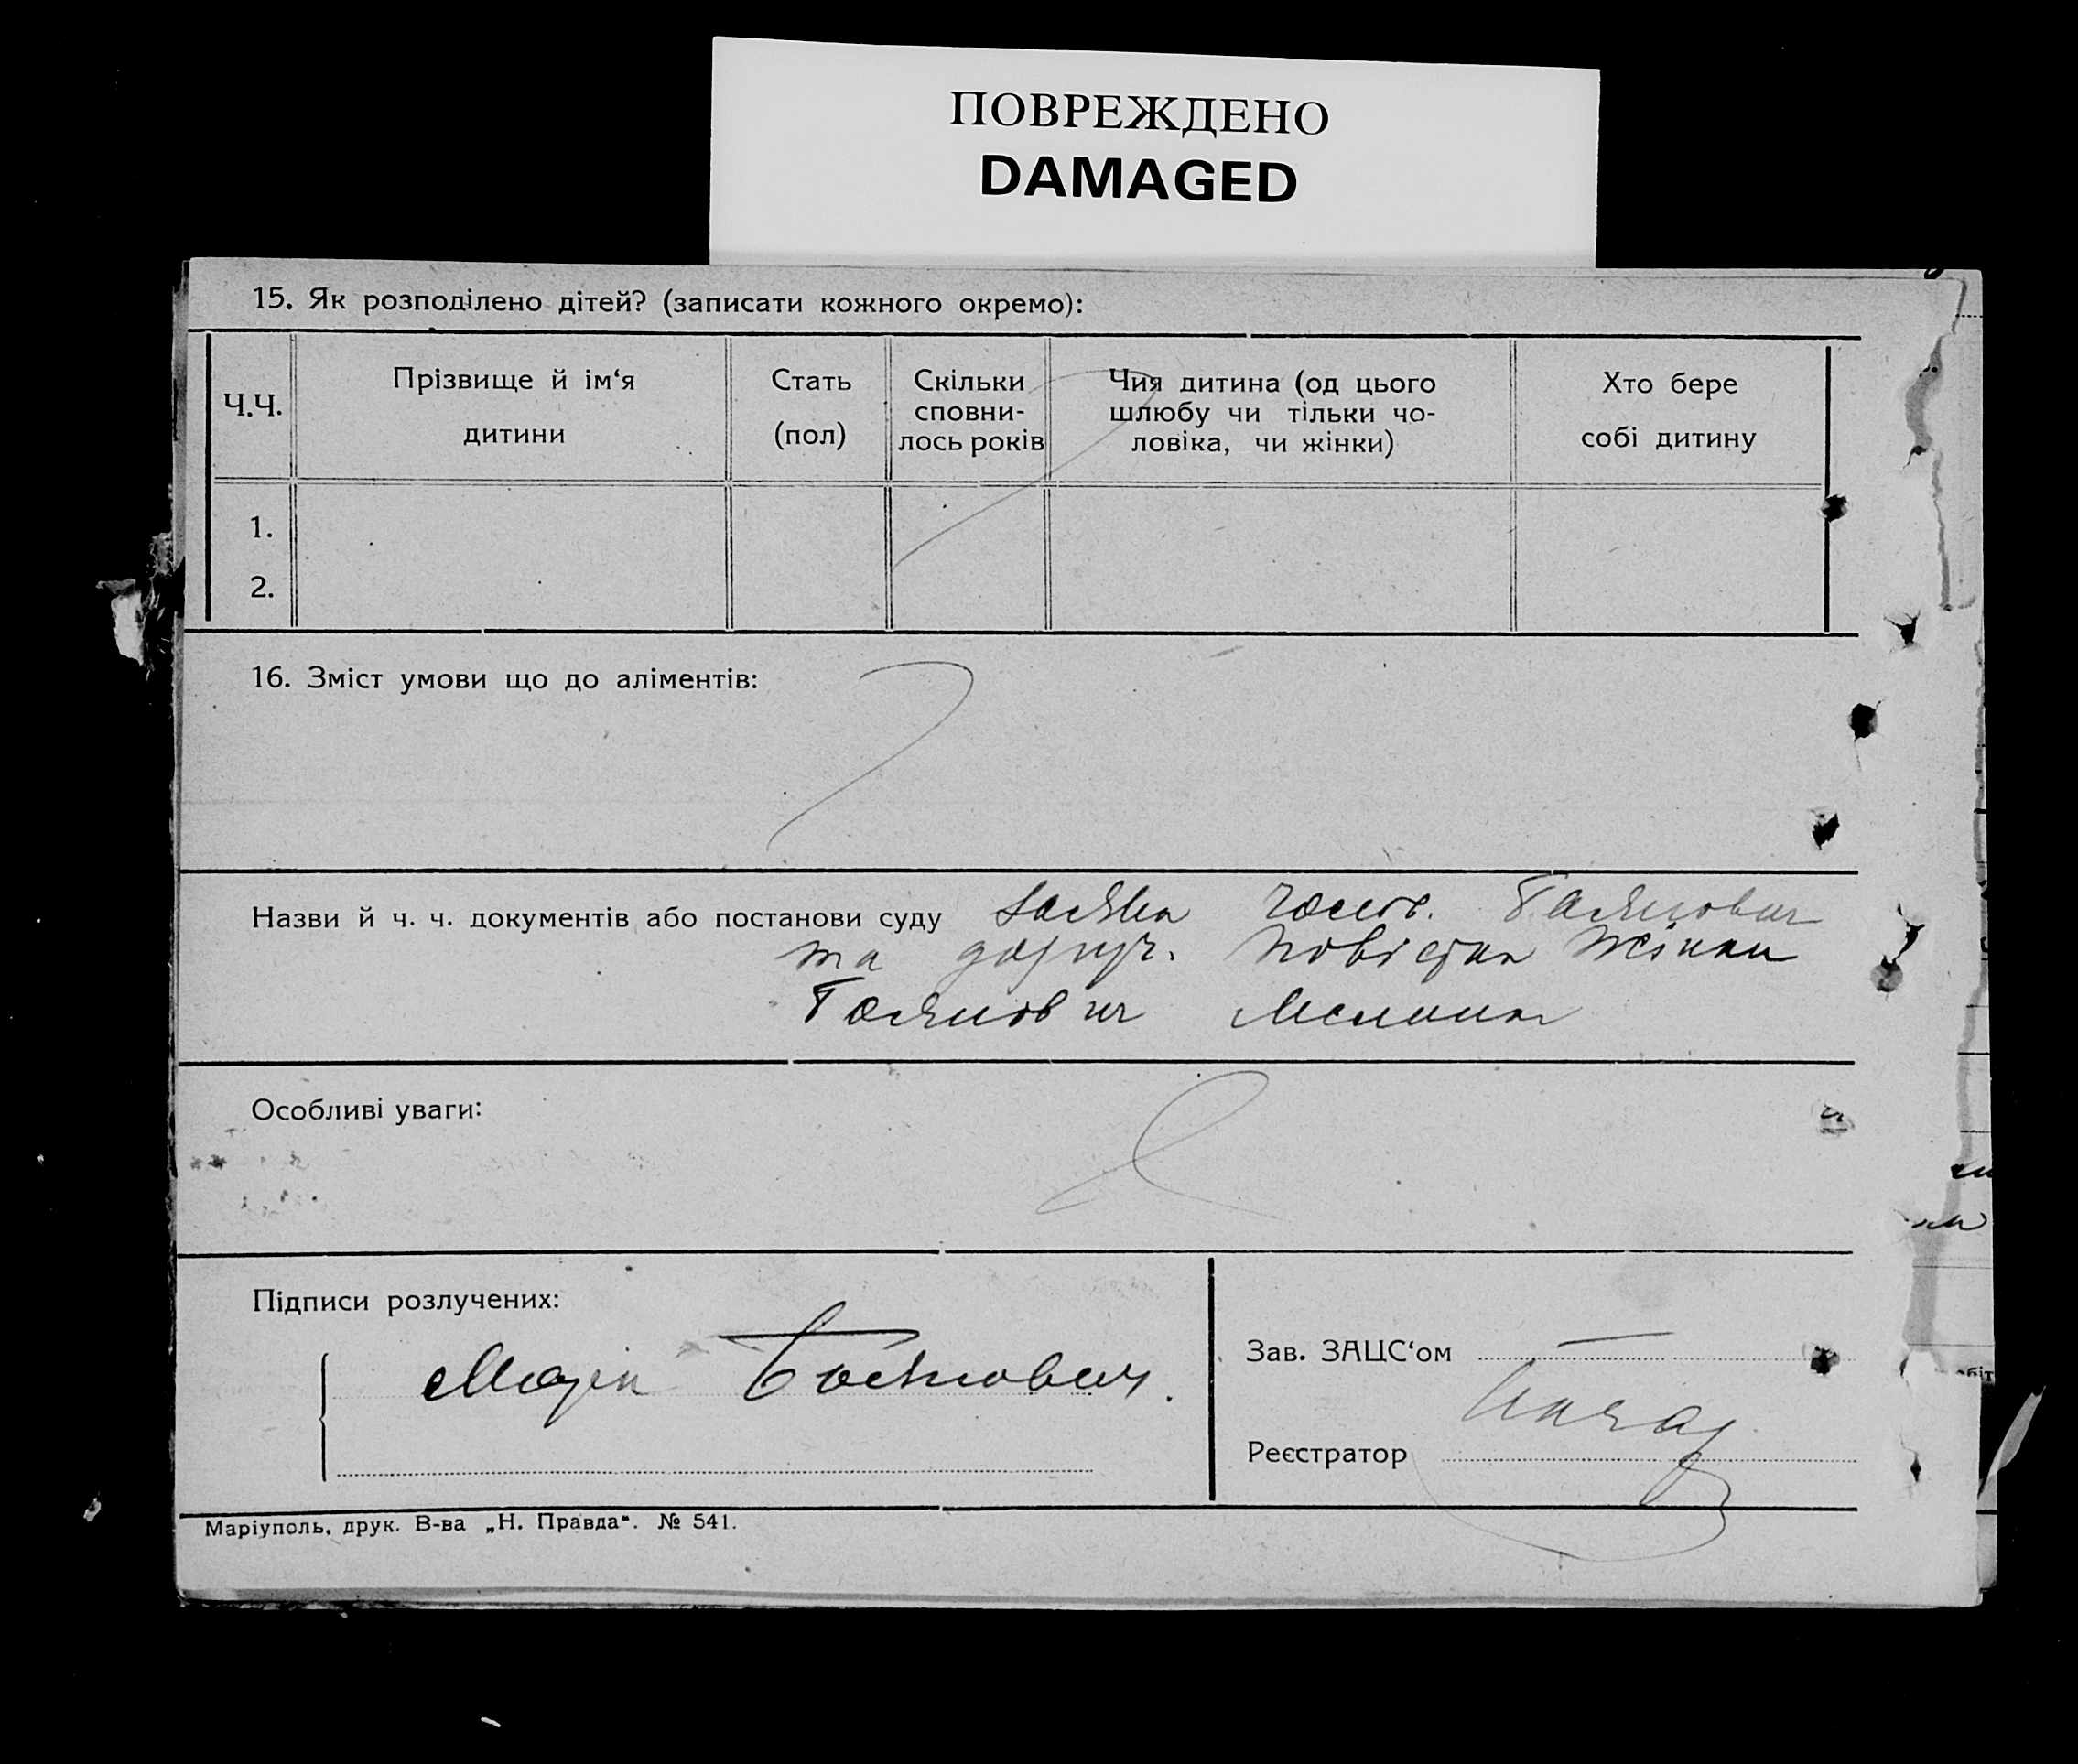 ПОВРЕЖДЕНО
DAMAGED
15. Як розподілено дітей? (записати кожного окремо):
Ч.Ч.
Прізвище й ім‘я
дитини
Стать
(пол)
Скільки
сповни-
лось років
Чия дитина (од цього
шлюбу чи тільки чо-
ловіка, чи жінки)
Хто бере
собі дитину
1.
2.
16. Зміст умови що до аліментів:
Назви й ч. ч. документів або постанови суду Заява
та доруч. повістка жінки
Особливі уваги:
Підписи розлучених:
Зав. ЗАЦС‘ом
Реєстратор
Маріуполь, друк. В-ва „Н. Правда“. № 541.